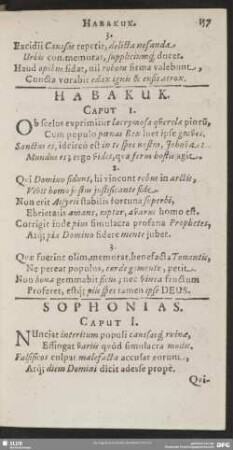 HABAKUK. 157
3.
Excidii Causas repetit, delicta nefanda
Urbis commemorat, suppliciumq; docet.
Haud opibus fidat, nil robora firma valebunt,
Cuncta vorabit edax ignis & ensis atrox.
HABAKUK.
CAPUT I.
Ob scelus exprimitur lacrymosa querela piorũ,
Cum populo pœnas Rex luet ipse graves.
Sanctus es, idcircò est in te spes nostra, Jehova,
Mundus es; ergo vides, quæ ferus hostis agit.
2.
Qui Domino fidunt, hi vincont rebus in arctis,
Vivit homo justum justificante fide.
Non erit Assyrii stabilis fortuna superbi,
Ebrietatis amans, raptor, avarus homo est.
Corrigit inde pius simulacra profana Prophetes,
Atq; pia Domino fidere mente jubet.
3.
Quæ fuerint olim, memorat, benefacta Tonantis,
Ne pereat populus, corde gemente, petit.
Non bona gemmabit ficus; nec vinea fructum
Proferet, estq; piis spes tamen ipse DEUS.
SOPHONIAS.
CAPUT I.
Nunciat interitum populi causasq; ruinæ,
Estingat variis quòd simulacra modis.
Falsificos culpat, malefacta accusat eorum,
Atq; diem Domini dicit adesse propè.
Qui-